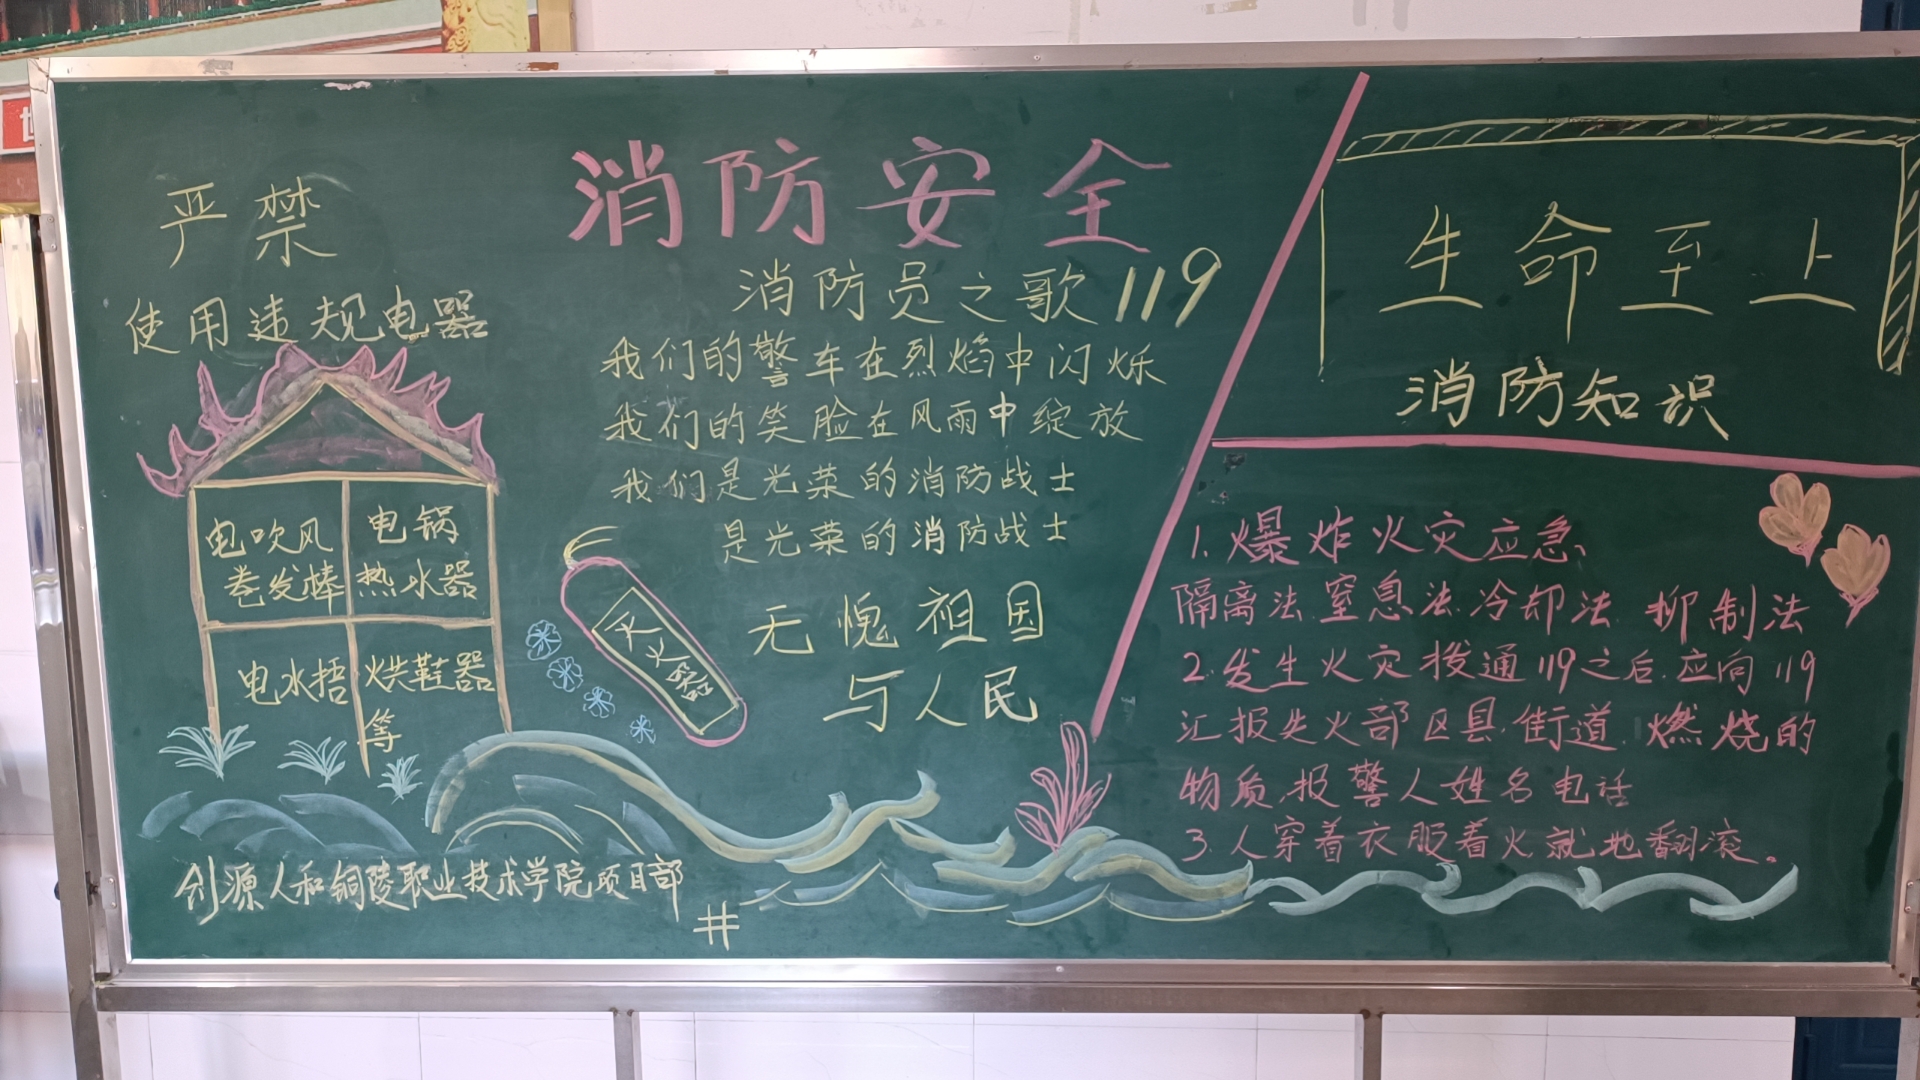 消防安全
严禁
使用违规电器
电吹风
卷发棒
电锅
热水器
电水捂
烘鞋器
等
消防员之歌119
我们的警车在烈焰中闪烁
我们的笑脸在风雨中绽放
我们是光荣的消防战士
是光荣的消防战士
无愧祖国
与人民
灭火器
生命至上
消防知识
1.爆炸火灾应急、
隔离法.窒息法.冷却法.抑制法
2.发生火灾拨通119之后.应向119
汇报失火部区县.街道.燃烧的
物质.报警人姓名电话
3.人穿着衣服着火就地翻滚。
创源人和铜陵职业技术学院项目部
井